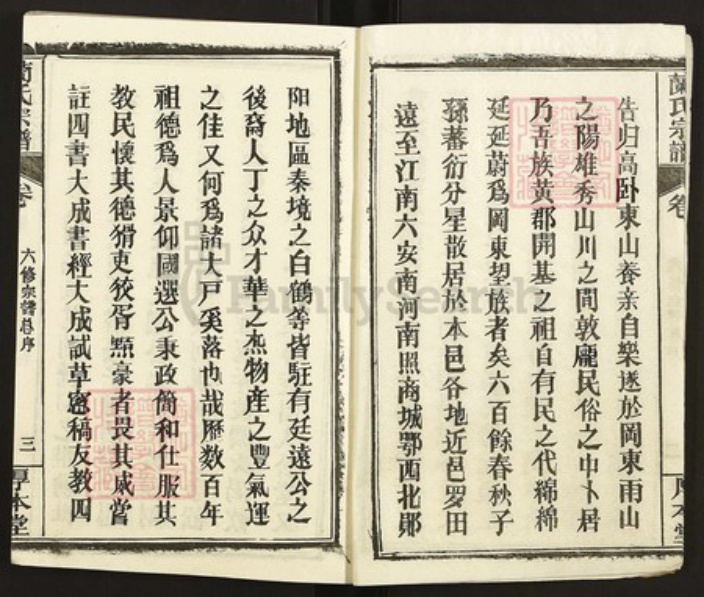 蘭氏宗譜
卷
厚本堂
告归高卧東山養亲自樂遂於岡東雨山
之陽雄秀山川之間敦龐民俗之中卜居
乃吾族黄郡開基之祖自有民之代綿綿
延延蔚爲岡東望族者矣六百餘春秋子
孫蕃衍分星散居於本邑各地近邑罗田
遠至江南六安南河南照商城鄂西北鄖
阳地區秦境之白鶴等皆駐有廷遠公之
後裔人丁之众才華之杰物産之豐氣運
之佳又何爲諸大戸奚落也哉歷数百年
祖德爲人景仰國選公秉政簡和仕服其
教民懷其德猾吏狡胥黠豪者畏其威嘗
註四書大成書經大成試草窻稿友教四
蘭氏宗譜
卷
六修宗譜总序
三
厚本堂
FamilySearch